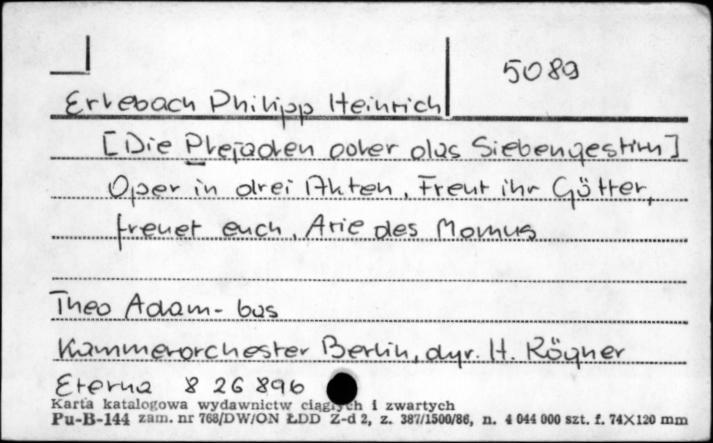 5089
Erlebach Philipp Heinrich
[Die Plejaden oder das Siebengestirn]
Oper in drei Akten. Freut ihr Götter,
freuet euch. Arie des Momus
Theo Adam - bas
Kammerorchester Berlin, dyr. H. Rögner
Eterna 8 26 896
Karta katalogowa wydawnictw ciągłych i zwartych
Pu-B-144 zam. nr 768/DW/ON ŁDD Z-d 2, z. 387/1500/86, n. 4 044 000 szt. f. 74X120 mm